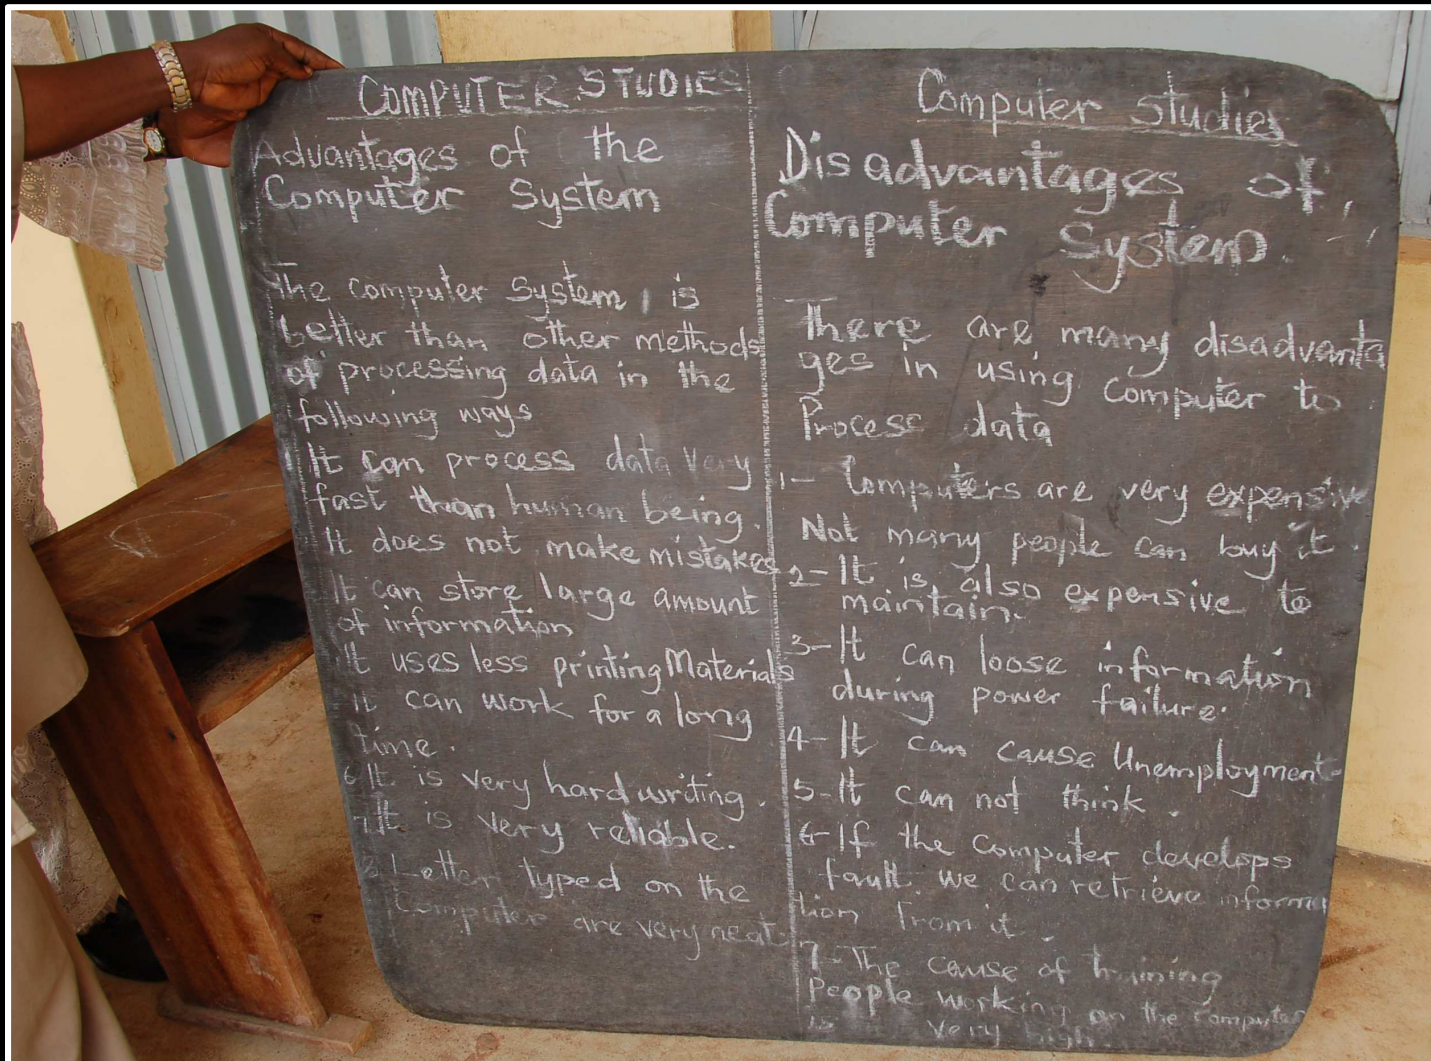 COMPUTER STUDIES
Advantages of the
Computer System
The computer System, is
better than other methods
of processing data in the
following ways
1 It can process data very
fast than human being.
It does not make mistakes
It can store large amount
of information
It uses less printing Materials
It can work for a long
time.
6 It is very hard writing.
7 It is very reliable.
8 Letter typed on the
Computer are very neat
Computer studies
Disadvantages of
Computer System.
There are many disadvanta
ges in using Computer to
Process data
1- Computers are very expensive
Not many people can buy it.
2- It is also expensive to
maintain.
3- It can loose information
during power failure.
4- It can cause Unemployment-
5- It can not think.
6- If the Computer develops
fault. we can retrieve informa
tion from it.
7- The cause of training
People working on the Computer
is very high.